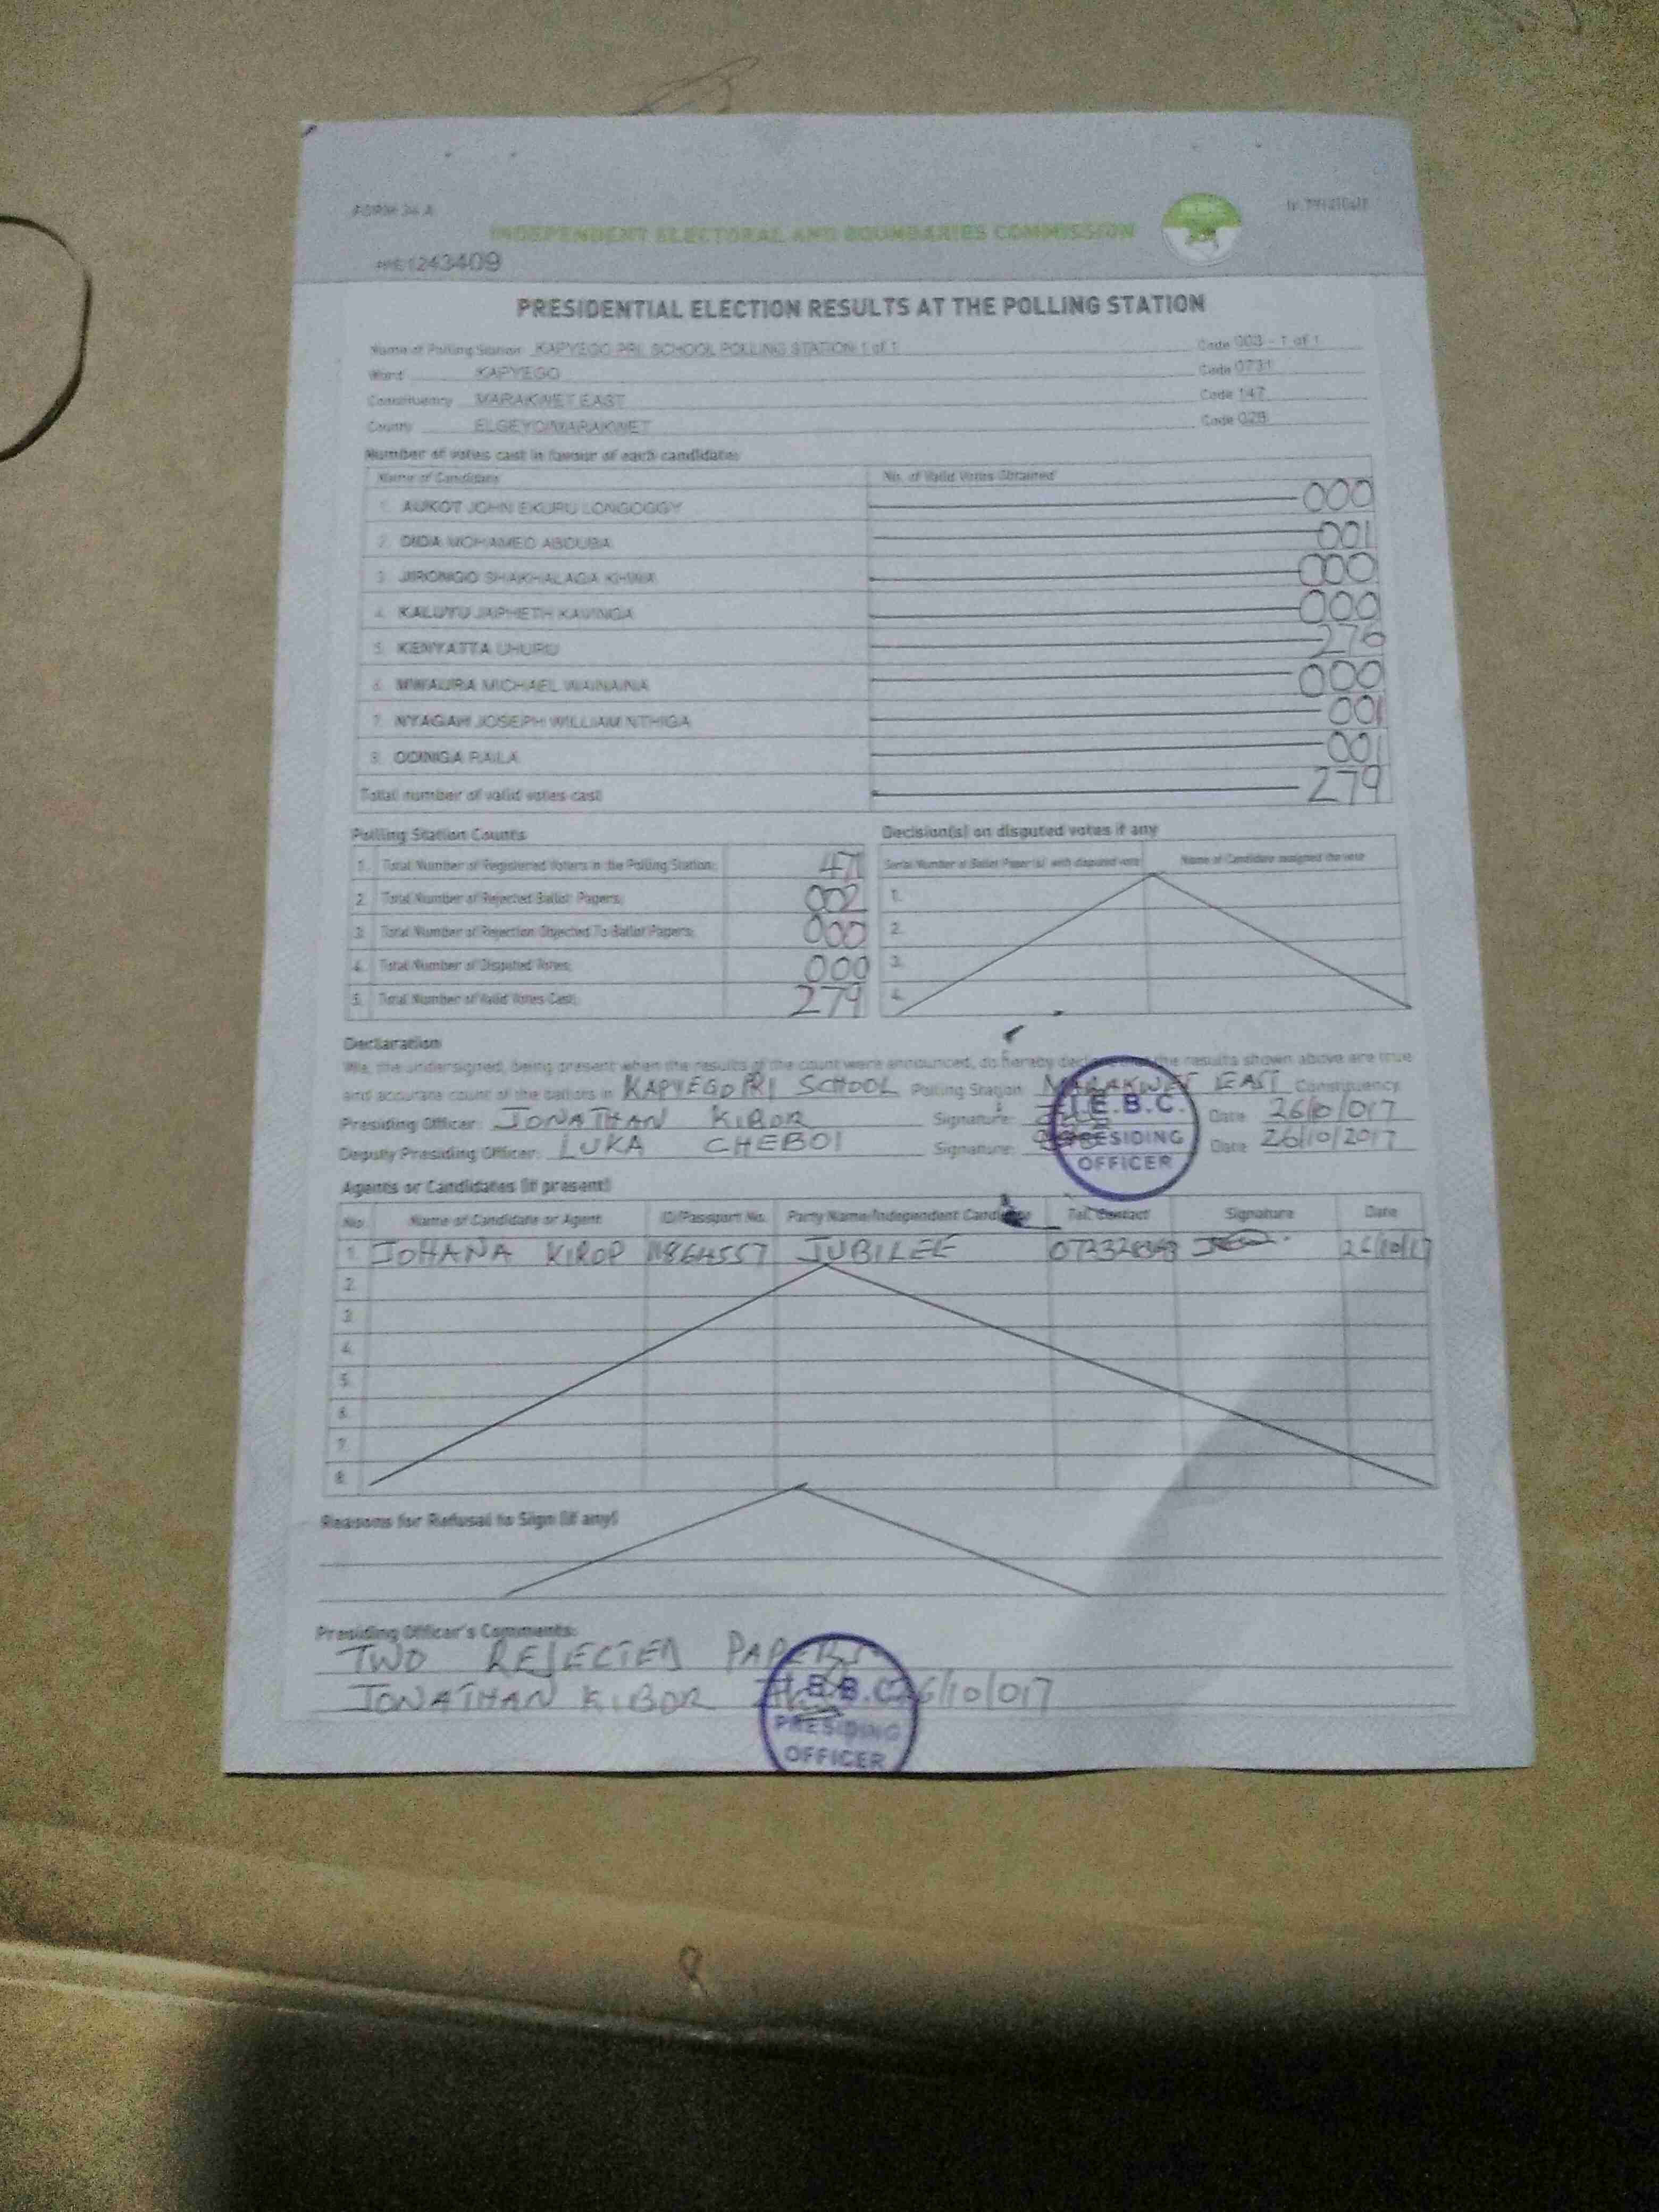 FORM 34 A
INDEPENDENT ELECTORAL AND BOUNDARIES COMMISSION
1243409
PRESIDENTIAL ELECTION RESULTS AT THE POLLING STATION
Name of Polling Station KAPYEGO PRI. SCHOOL POLLING STATION 1 of 1 Code 003 - 1 of 1
Ward KAPYEGO Code 0731
Constituency MARAKWET EAST Code 147
County ELGEYO/MARAKWET Code 028
Number of votes cast in favour of each candidate:
Name of Candidate No. of Valid Votes Obtained
1. AUKOT JOHN EKURU LONGOGGY 000
2. DIDA MOHAMED ABDUBA 001
3. JIRONGO SHAKHALAGA KHWA 000
4. KALUYU JAPHETH KAVINGA 000
5. KENYATTA UHURU 276
6. MWAURA MICHAEL WAINAINA 000
7. NYAGAH JOSEPH WILLIAM NTHIGA 001
8. ODINGA RAILA 001
Total number of valid votes cast 279
Polling Station Counts
1. Total Number of Registered Voters in the Polling Station; 471
2. Total Number of Rejected Ballot Papers; 002
3. Total Number of Rejection Objected To Ballot Papers; 000
4. Total Number of Disputed Votes; 000
5. Total Number of Valid Votes Cast; 279
Decision(s) on disputed votes if any
Serial Number of Ballot Paper (s) with disputed vote Name of Candidate assigned the vote
1.
2.
3.
4.
Declaration
We, the undersigned, being present when the results of the count were announced, do hereby declare that the results shown above are true
and accurate count of the ballots in KAPYEGO PRI SCHOOL Polling Station MARAKWET EAST Constituency
Presiding Officer: JONATHAN KIBOR Signature: Date 26/10/017
Deputy Presiding Officer: LUKA CHEBOI Signature: Date 26/10/2017
I.E.B.C.
PRESIDING
OFFICER
Agents or Candidates (if present)
No. Name of Candidate or Agent ID/Passport No. Party Name/Independent Candidate Tel. Contact Signature Date
1. JOHANA KIROP 11864557 JUBILEE 26/10/17
2.
3.
4.
5.
6.
7.
8.
Reasons for Refusal to Sign (if any)
Presiding Officer's Comments:
TWO REJECTED PAPERS
JONATHAN KIBOR 26/10/017
I.E.B.C
PRESIDING
OFFICER